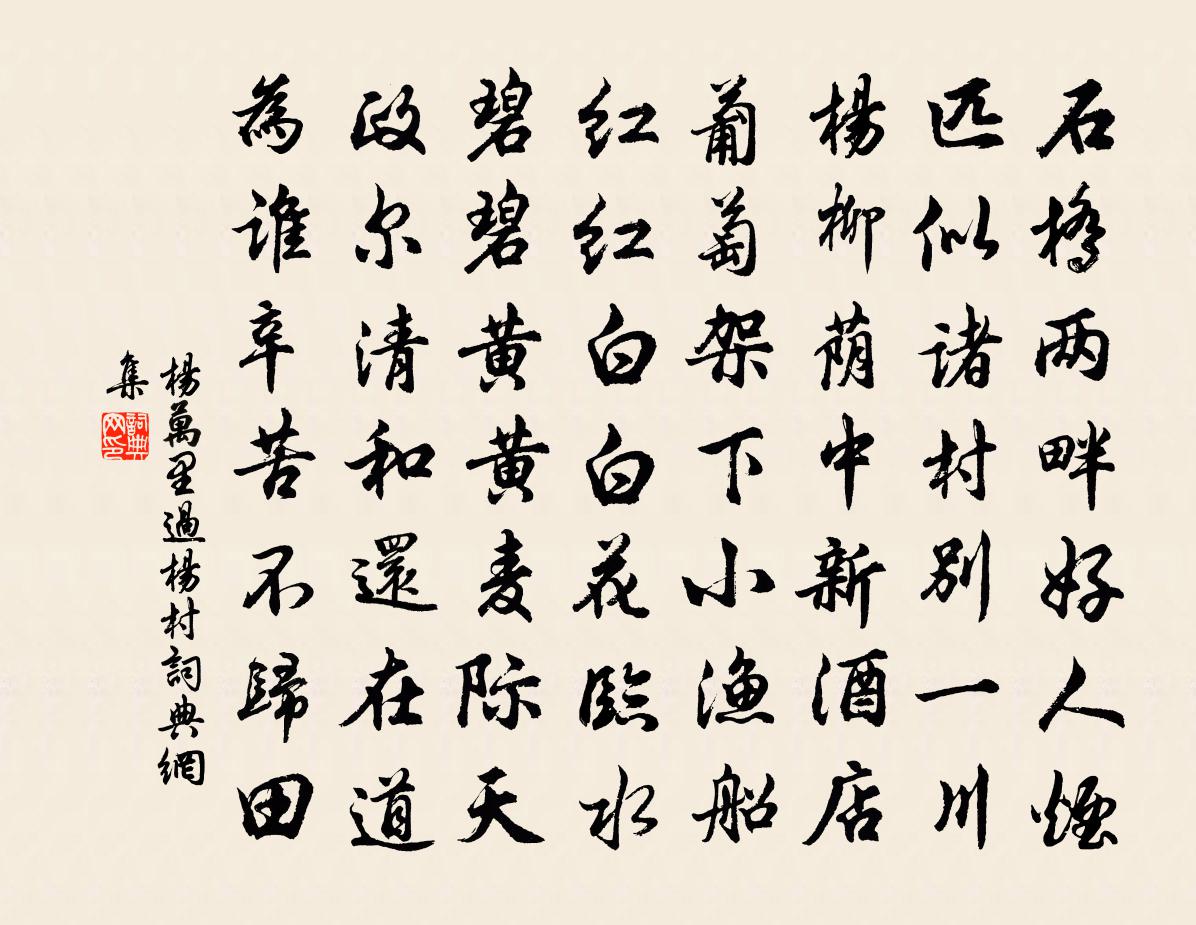 石橋两畔好人煙
匹似诸村别一川
楊柳荫中新酒店
葡萄架下小渔船
红红白白花臨水
碧碧黄黄麦际天
政尔清和還在道
為谁辛苦不歸田
楊萬里過楊村詞典網
集
詞典
网印